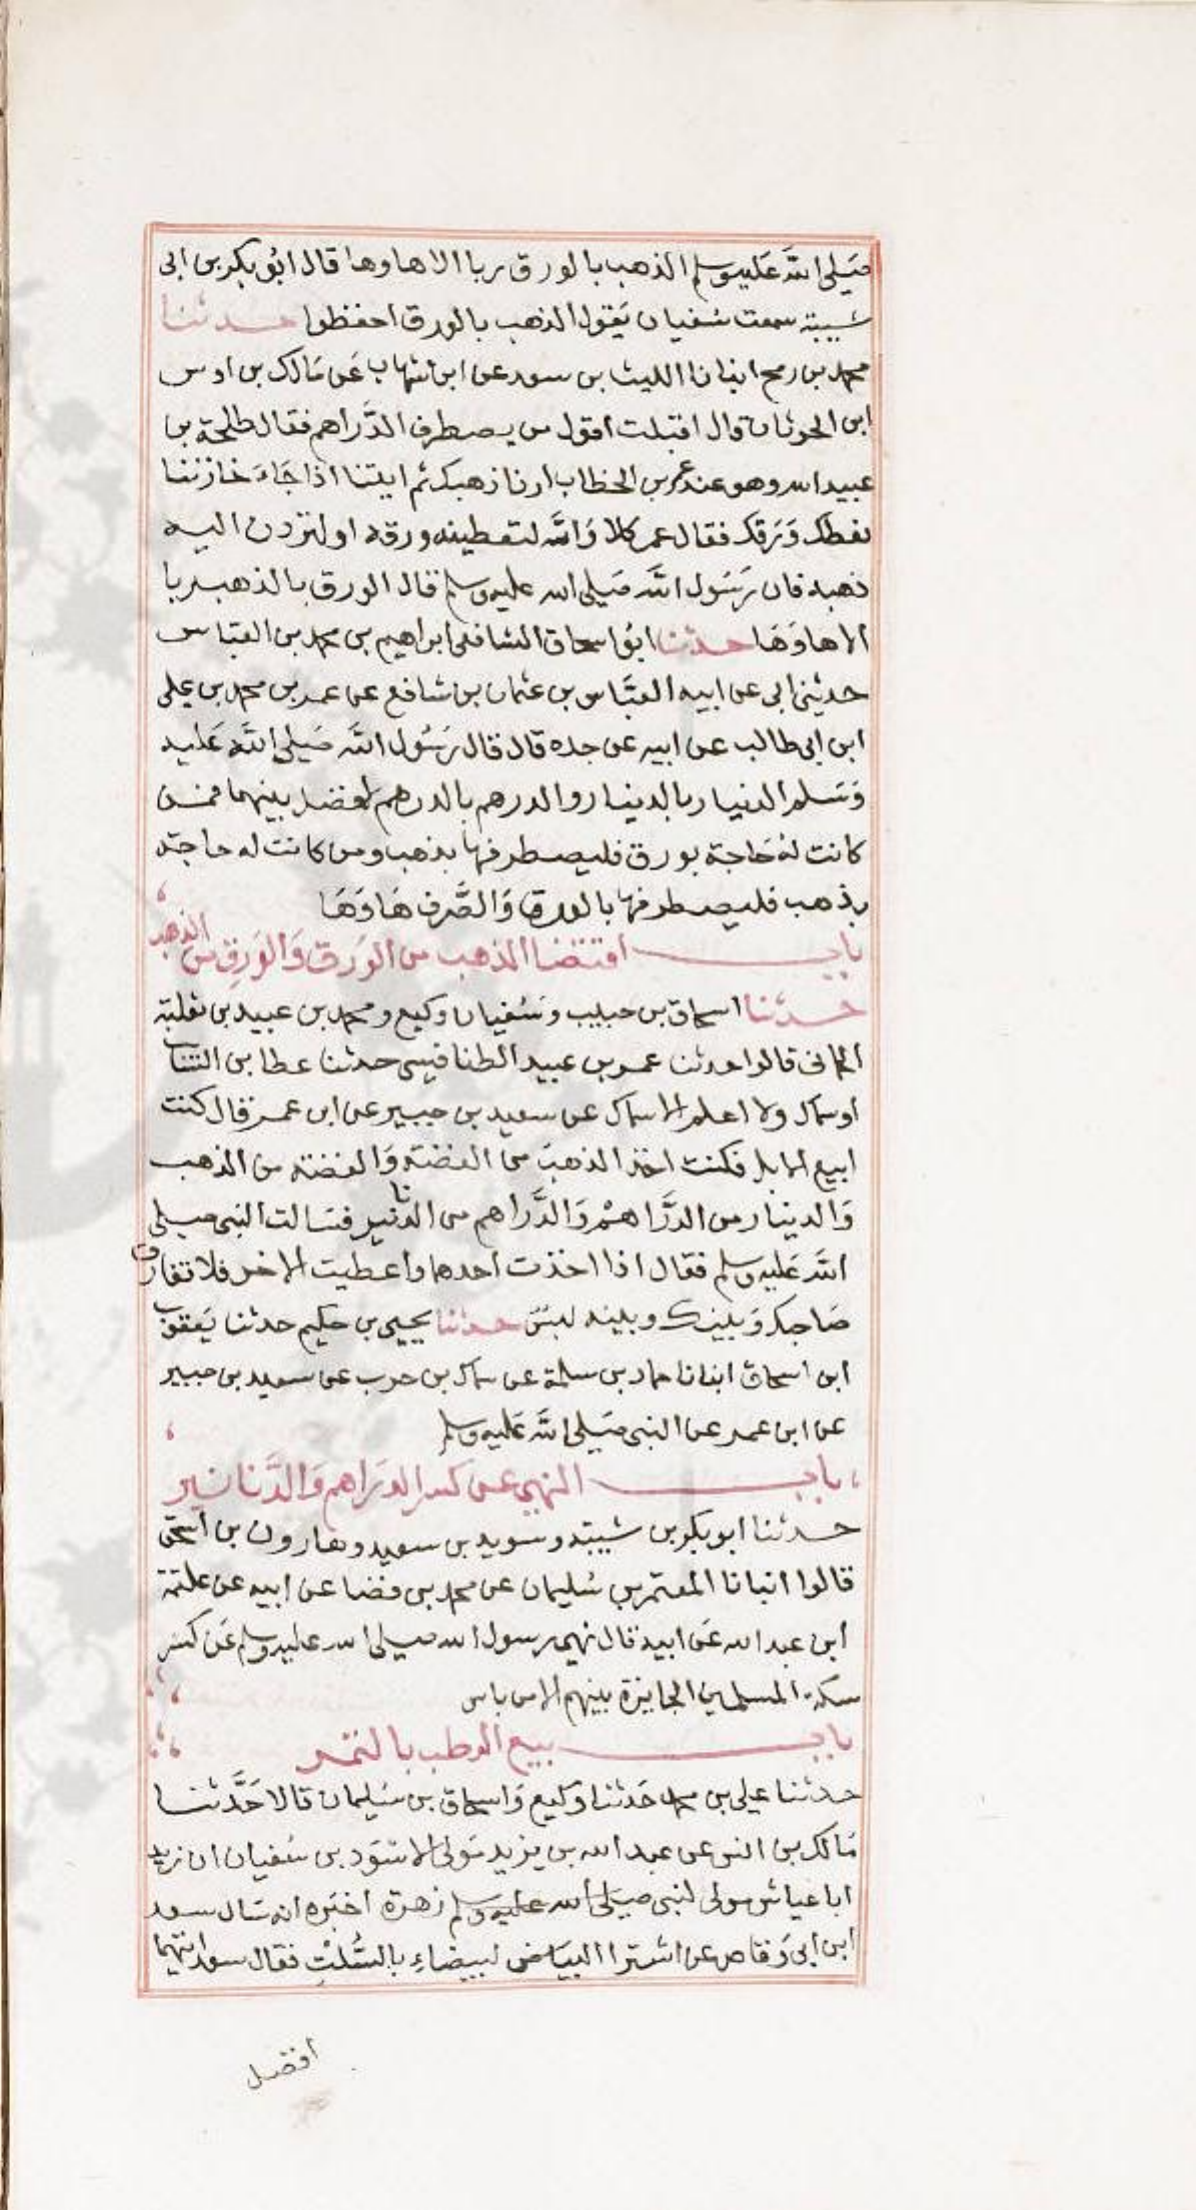 صَلى اللَّه عَليه وسلم الذهب بالورق ربا الا ها وها قال ابُو بكر بن ابى
شيبة سمعت سُفيان يَقول الذهب بالورق احفظوا حدثنا
محمد بن رمح انبانا الليث بن سعد عن ابن شهاب عَن مَالك بن اوس
ابن الحدثان قال اقبلت اقول من يصطرف الدَّراهم فقال طلحة بن
عبيد الله وهو عند عمر بن الخطاب ارنا ذهبك ثم ايتنا اذا جَاءَ خازننا
نعطك وَرقك فقال عمر كلا وَاللَّه لتعطينه ورقه او لتردن اليه
ذهبه فان رَسُول اللَّه صَلى الله عليه وسلم قال الورق بالذهب ربا
الا ها وَهَا حدثنا ابُو اسحاق الشافعى ابراهيم بن محمد بن العبّاس
حدثنى ابى عن ابيه العبَّاس بن عثمان بن شافع عن عمر بن محمد بن على
ابن ابى طالب عن ابيه عن جده قال قال رَسُول اللَّه صَلى اللَّه عَليه
وَسَلم الدنيار بالدينار والدرهم بالدرهم لا فضل بينهما فمن
كانت لهُ حَاجة بورق فليصطرفها بذهب ومن كانت له حاجة
بذهب فليصطرفها بالورق وَالصَّرف هَا وَهَا
باب اقتضا الذهب من الوَرق وَالوَرِق من الذهب
حدثنا اسحاق بن حبيب وَسُفيان وكيع ومحمد بن عبيد بن ثعلبة
الحمانى قالوا حدثنا عمر بن عبيد الطنافسى حدثنا عطا بن السَّائب
او سماك ولا اعلم الا سماك عن سعيد بن جبير عن ابن عمر قال كنت
ابيع الابل فكنت اخذ الذهبَ من الفضة وَالفضة من الذهب
وَالدينار من الدَّراهم وَالدَّراهم من الدنانير فسَالت النبى صلى
اللَّه عَليه وسلم فقال اذا اخذت احدهما واعطيت الاخر فلا تفارق
صَاحبك وَبينك وبينه لبسٌ حدثنا يحيى بن حكيم حدثنا يَعقوب
ابن اسحاق انبانا حماد بن سلمة عن سماك بن حرب عن سعيد بن جبير
عن ابن عمر عن النبى صَلى اللَّه عَليه وسلم
باب النهى عن كسر الدرَاهم وَالدَّنانير
حدثنا ابو بكر بن شيبة وسويد بن سعيد وهارون بن اسحق
قالوا انبانا المعتمر بن سُليمان عن محمد بن فضا عن ابيه عن علقمة
ابن عبد الله عَن ابيه قال نهى رسول الله صلى الله عليه وسلم عَن كسر
سكة المسلمين الجايزة بينهم الا من باس
باب بيع الرطب بالتمر
حدثنا على بن محمد حَدثنا وكيع وَاسحاق بن سُليمان قالا حَدَّثنا
مَالك بن انس عن عبد الله بن يزيد مَولى الاسْوَد بن سُفيان ان زيد
ابا عياش مولى لبنى صَلى الله عليه وسلم زهرة اخبَره انه سَال سعد
ابن ابى وَقاص عن اشترا البيَاض لبيضاءِ بالسُّلتِ فقال سعد ايتهما
افضل